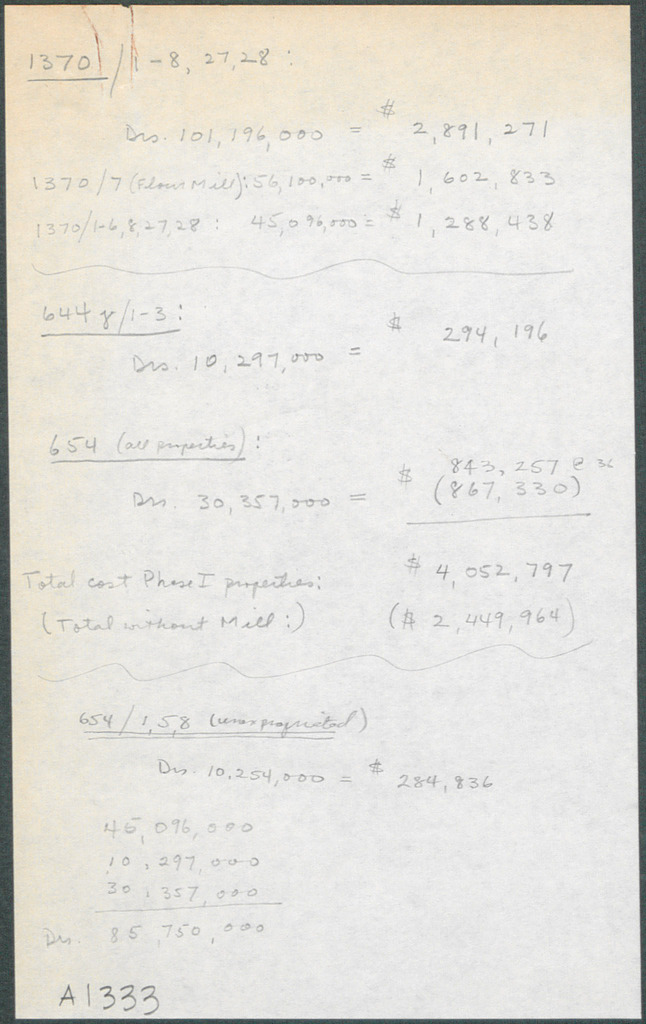 1370/1-8, 27, 28 :
Drs. 101,196,000 = $ 2,891,271
1370/7 (Flour Mill): 56,100,000 = $ 1,602,833
1370/1-6,8,27,28 : 45,096,000 = $ 1,288,438
644 γ/1-3 :
Drs. 10,297,000 = $ 294,196
654 (all properties) :
$ 843,257 @ 36
Drs. 30,357,000 = (867,330)
Total cost Phase I properties: $ 4,052,797
(Total without Mill :) ($ 2,449,964)
654/1,5,8 (unexpropriated)
Drs. 10,254,000 = $ 284,836
45,096,000
10,297,000
30,357,000
Drs. 85,750,000
A1333